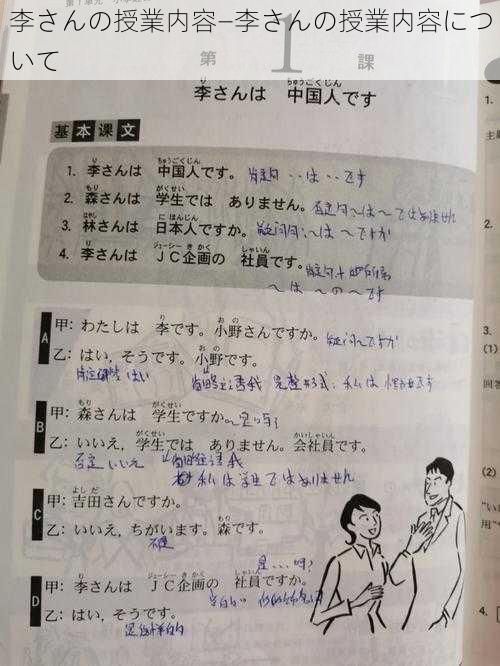 李さんの授業内容–李さんの授業内容について
第 1 課
李さんは 中国人です
基本课文
1. 李さんは 中国人です。 肯定句 ‥は‥です
2. 森さんは 学生では ありません。 否定句~は~ではありません
3. 林さんは 日本人ですか。 疑问句:~は ~ですか
4. 李さんは JC企画の 社員です。
~は ~の~です
A
甲: わたしは 李です。小野さんですか。 疑问~ですか
乙: はい, そうです。小野です。
B
甲: 森さんは 学生ですか。
乙: いいえ, 学生では ありません。会社員です。
否定 いいえ
私は学生ではありません
C
甲: 吉田さんですか。
乙: いいえ, ちがいます。森です。
不是
是...吗?
D
甲: 李さんは JC企画の 社員ですか。
乙: はい, そうです。